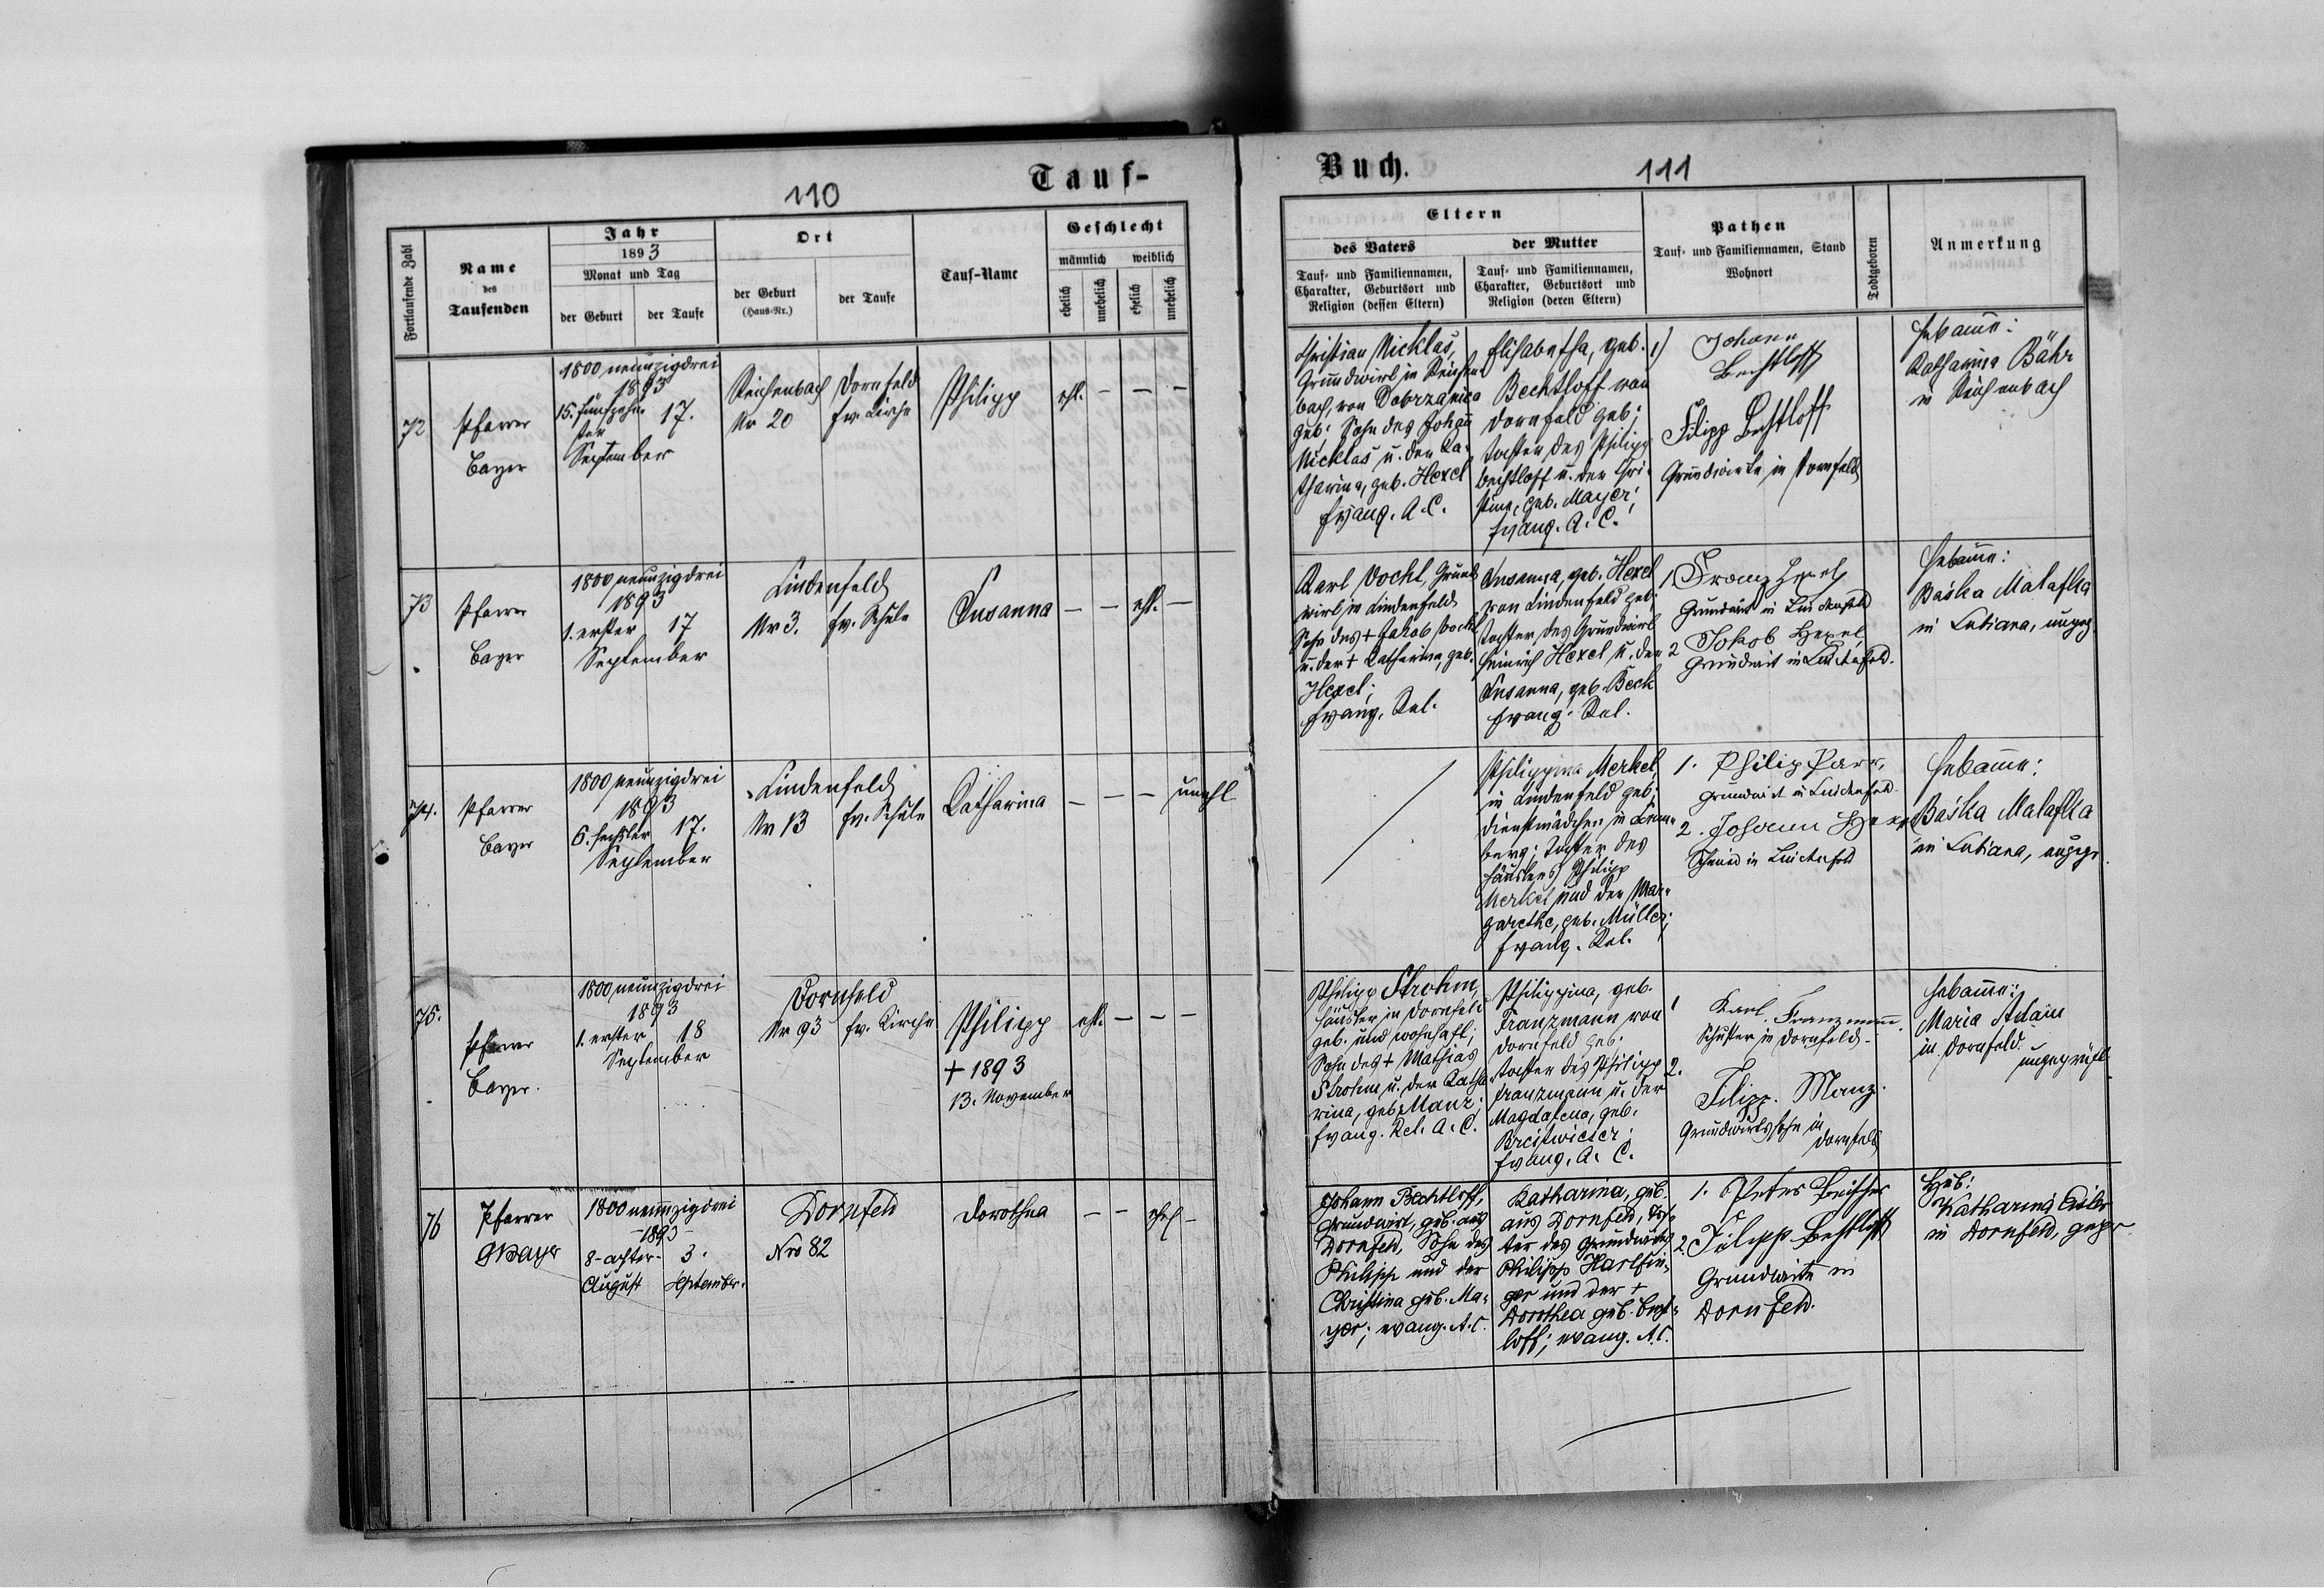 110
Tauf-
Fortlaufende Zahl
Name
des
Taufenden
Jahr
1893
Monat und Tag
der Geburt
der Taufe
Ort
der Geburt
(Haus-Nr.)
der Taufe
Tauf-Name
Geschlecht
männlich
weiblich
ehelich
unehelich
ehelich
unehelich
72
Pfarrer
Bayer
1800 neunzigdrei
1893
15. fünfzehn-
ter
17.
September
Reichenbach
Nr 20
Dornfeld
ev. Kirche
Philipp
ehl. - - -
73
Pfarrer
Bayer
1800 neunzigdrei
1893
1. erster 17
September
Lindenfeld
Nr 3. ev. Schule
Susanna
- - ehl. -
74.
Pfarrer
Bayer
1800 neunzigdrei
1893
6. sechster 17.
September
Lindenfeld
Nr 13 ev. Schule
Catharina
- - - unehl
75.
Pfarrer
Bayer.
1800 neunzigdrei
1893
1. erster 18
September
Dornfeld
Nr 93 ev. Kirche
Philipp
+ 1893
13. November
ehl. - - -
76
Pfarrer
GBayer
1800 neunzigdrei
-1893-
8-achter- 3.
August September.
Dornfeld
Nro 82
Dorothea
- - ehel -
Buch.
111
Eltern
des Vaters
Tauf- und Familiennamen,
Charakter, Geburtsort und
Religion (dessen Eltern)
der Mutter
Tauf- und Familiennamen,
Charakter, Geburtsort und
Religion (deren Eltern)
Pathen
Tauf- und Familiennamen, Stand
Wohnort
Todtgeboren
Anmerkung
Christian Nicklas,
Grundwirt in Reichen-
bach, von Dobrzanica
geb. Sohn des Johann
Nicklas u. der Ca-
tharina, geb. Hexel
Evang. A. C.
Elisabetha, geb.
Bechtloff von
Dornfeld geb.
Tochter des Philipp
Bechtloff u. der Chri-
stina, geb. Mayer;
Evang. A. C.
1) Johann
Bechtloff
Filipp Bechtloff
Grundwirte in Dornfeld
Hebamme:
Katharina Bähr
in Reichenbach
Karl Vocht, Grund-
wirt in Lindenfeld
Sohn des + Jakob Vocht
u. der + Catharina, geb.
Hexel;
Evang. Rel.
Susanna, geb. Hexel
von Lindenfeld geb;
Tochter des Grundwirt
Heinrich Hexel u. der
Susanna, geb. Beck
Evang. Rel.
1 Franz Hexel
Grundwirt in Lindenfeld
2 Jakob Hexel
Grundwirt in Lindenfeld.
Hebamme:
Baśka Matafka
in Lubiana, ungep
Philippina Merkel
in Lindenfeld geb;
Dienstmädchen in Lem-
berg; Tochter des
Häuslers Philipp
Merkel und der Mar-
garethe, geb. Müller;
Evang. Rel.
1. Philip Parr,
Grundwirt in Lindenfeld
2. Johann
in Lindenfeld
Hebamme:
Baśka Matafka
in Lubiana, ungepr.
Philipp Strohm,
Häusler in Dornfeld
geb. und wohnhaft;
Sohn des + Mathias
Strohm u. der Catha-
rina, geb. Manz;
Evang. Rel. A. C.
Philippina, geb.
Franzmann von
Dornfeld geb.
Tochter des Philipp
Franzmann u. der
Magdalena, geb.
Breitwieser;
Evang. A. C.
1 Karl Franzmann.
Schuster in Dornfeld-
2.
Filipp. Manz.
Grundwirtssohn in
Dornfeld
Hebamme:
Maria Adam
in Dornfeld.
ungeprüft
Johann Bechtloff,
Grundwirt, geb. aus
Dornfeld, Sohn des
Philipp und der
Christina geb. Ma-
yer; evang. A. C.
Katharina, geb.
aus Dornfeld, Toch-
ter des Grundwirtes
Philipp Harlfin-
ger und der +
Dorothea geb. Becht-
loff; evang. A. C.
1. Peter
2. Filipp Bechtloff
Grundwirte in
Dornfeld.
Heb:
Katharina
in Dornfeld, gepr